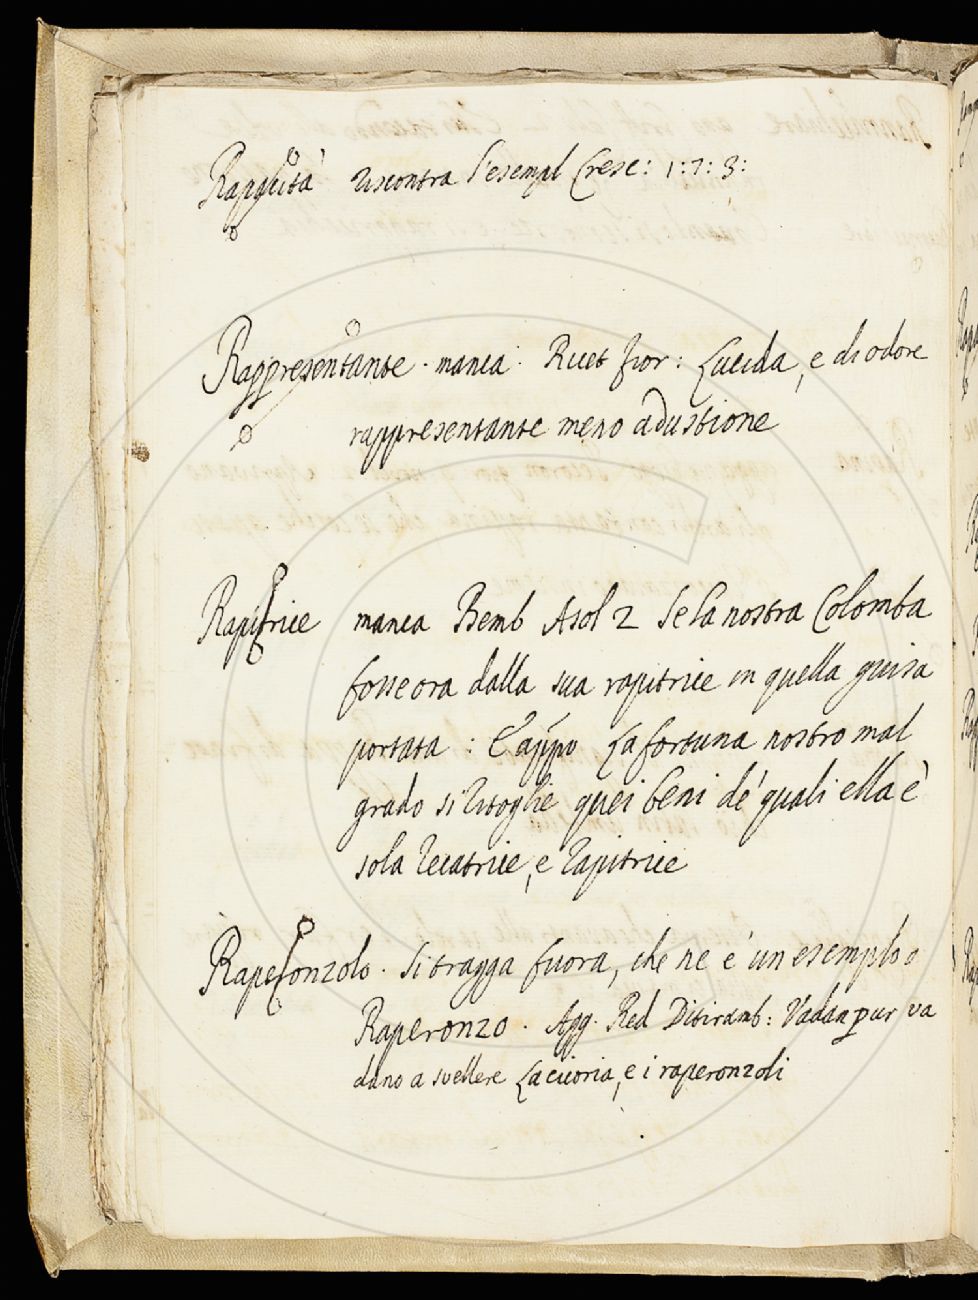 Rapacità riscontra l'esempl Cresc: 1:7: 3:
Rappresentante · manca · Ricet fior: Lucida, e di odore
rappresentante meno adustione
Rapitrice manca Bemb Asol 2 Se la nostra Colomba
fosse ora dalla sua rapitrice in quella guisa
portata : E appo La fortuna nostro mal
grado si ritoglie quei beni de' quali ella è
sola recatrice, e rapitrice
Raperonzolo · Si tragga fuora, che ne è un esemplo o
Raperonzo · Agg. Red Ditiramb: Vadan pur va
dano a svellere La cicoria, e i raperonzoli